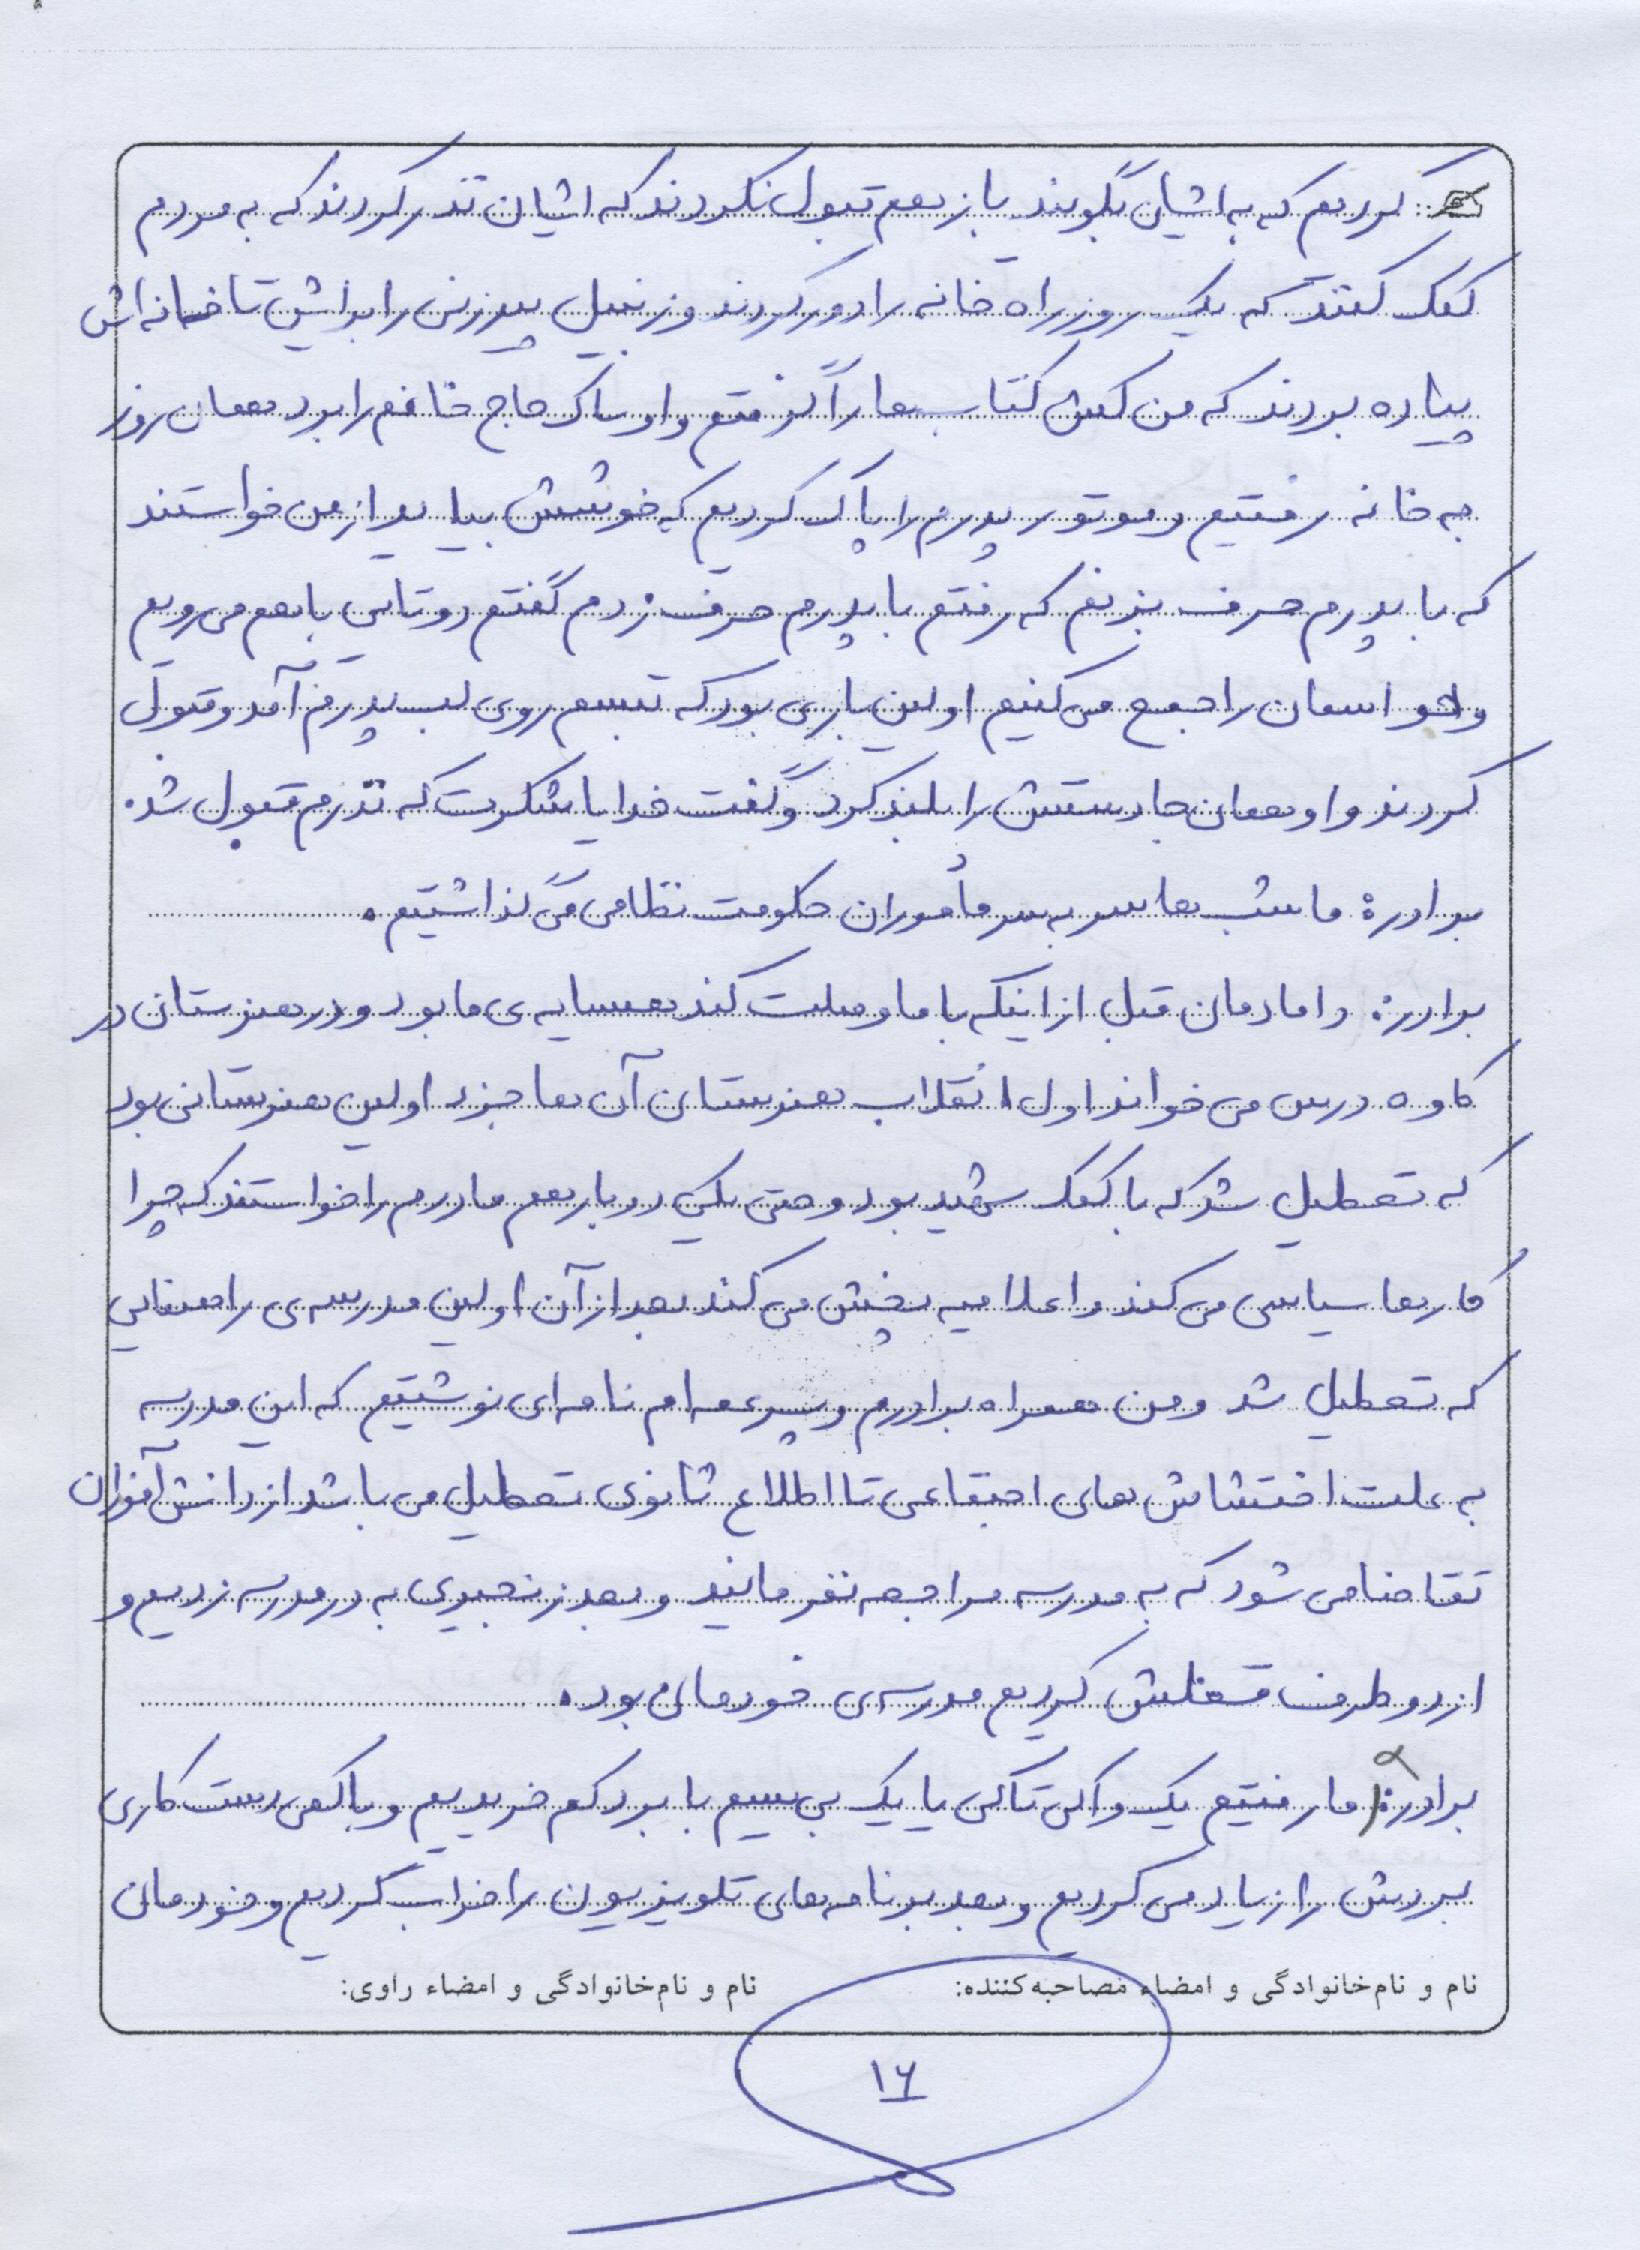 کردیم که به ایشان بگویند باز هم قبول نکردند که ایشان نذر کردند که به مردم
کمک کنند که یک روز راه خانه را دور کردند و زنبیل پیرزنی را برایش تا خانه‌اش
پیاده بردند که من کیف کتاب‌ها را گرفتم و او ساک حاج خانم را برد همان روز
به خانه رفتیم و موتور پدرم را پاک کردیم که خوشش بیاید از من خواستند
که با پدرم حرف بزنم که رفتم با پدرم حرف زدم گفتم دوتایی با هم می‌رویم
و حواسمان را جمع می‌کنیم اولین باری بود که تبسم روی لب پدرم آمد و قبول
کردند و او همان جا دستش را بلند کرد و گفت خدایا شکرت که نذرم قبول شد.
برادر: ما شب‌ها سر به سر مأموران حکومت نظامی می‌گذاشتیم.
برادر: دامادمان قبل از اینکه با ما وصلت کند همسایه‌ی ما بود و در هنرستان در
کاوه درس می‌خواند اول انقلاب هنرستان آن‌ها جزء اولین هنرستانی بود
که تعطیل شد که با کمک شهید بود و حتی یکی دو بار هم مادرم را خواستند که چرا
کارها سیاسی می‌کند و اعلامیه پخش می‌کند بعد از آن اولین مدرسه‌ی راهنمایی
که تعطیل شد و من همراه برادرم و پسرعمه‌ام نامه‌ای نوشتیم که این مدرسه
به علت اغتشاش‌های اجتماعی تا اطلاع ثانوی تعطیل می‌باشد از دانش‌آموزان
تقاضا می‌شود که به مدرسه مراجعه نفرمایند و بعد زنجیری به در مدرسه زدیم و
از دو طرف قفلش کردیم مدرسه‌ی خودمان بود.
برادر: ما رفتیم یک واکی تاکی یا یک بی‌سیم با برد کم خریدیم و با کمی دست کاری
بردش را زیاد می‌کردیم و بعد برنامه‌های تلویزیون را خراب کردیم و خودمان
نام و نام‌خانوادگی و امضاء مصاحبه‌کننده: نام و نام‌خانوادگی و امضاء راوی:
۱۶